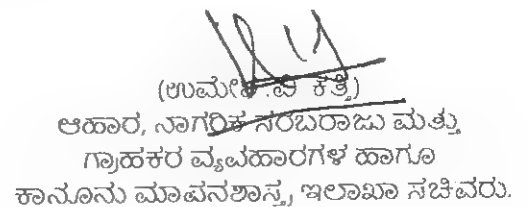 (ಉಮೇಶ .ವಿ ಕತ್ತಿ)
ಆಹಾರ, ನಾಗರಿಕ ಸರಬರಾಜು ಮತ್ತು
ಗ್ರಾಹಕರ ವ್ಯವಹಾರಗಳ ಹಾಗೂ
ಕಾನೂನು ಮಾಪನಶಾಸ್ತ್ರ ಇಲಾಖಾ ಸಚಿವರು.